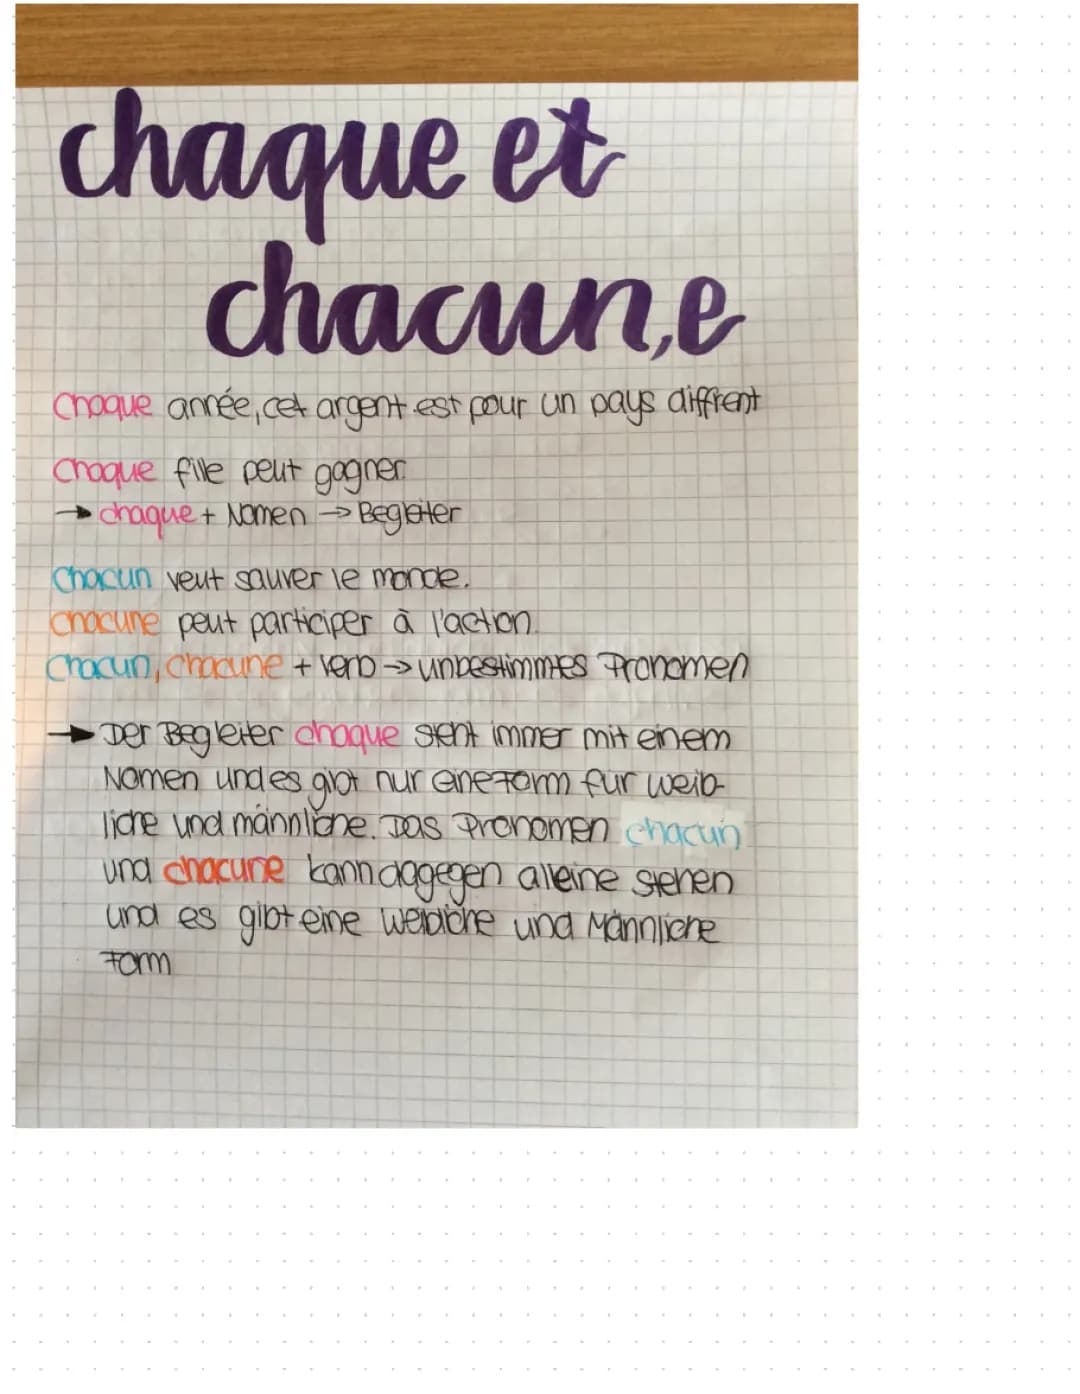 chaque et
chacun,e
Chaque année, cet argent est pour un pays diffrent
Chaque fille peut gagner.
→ chaque + Nomen → Begleiter
Chacun veut sauver le monde.
chacune peut participer à l'action.
Chacun, Chacune + Verb → unbestimmtes Pronomen
→ Der Begleiter chaque steht immer mit einem
Nomen und es gibt nur eine Form für weib-
liche und männliche. Das Pronomen chacun
und chacune kann dagegen alleine stehen
und es gibt eine weibliche und Männliche
Form